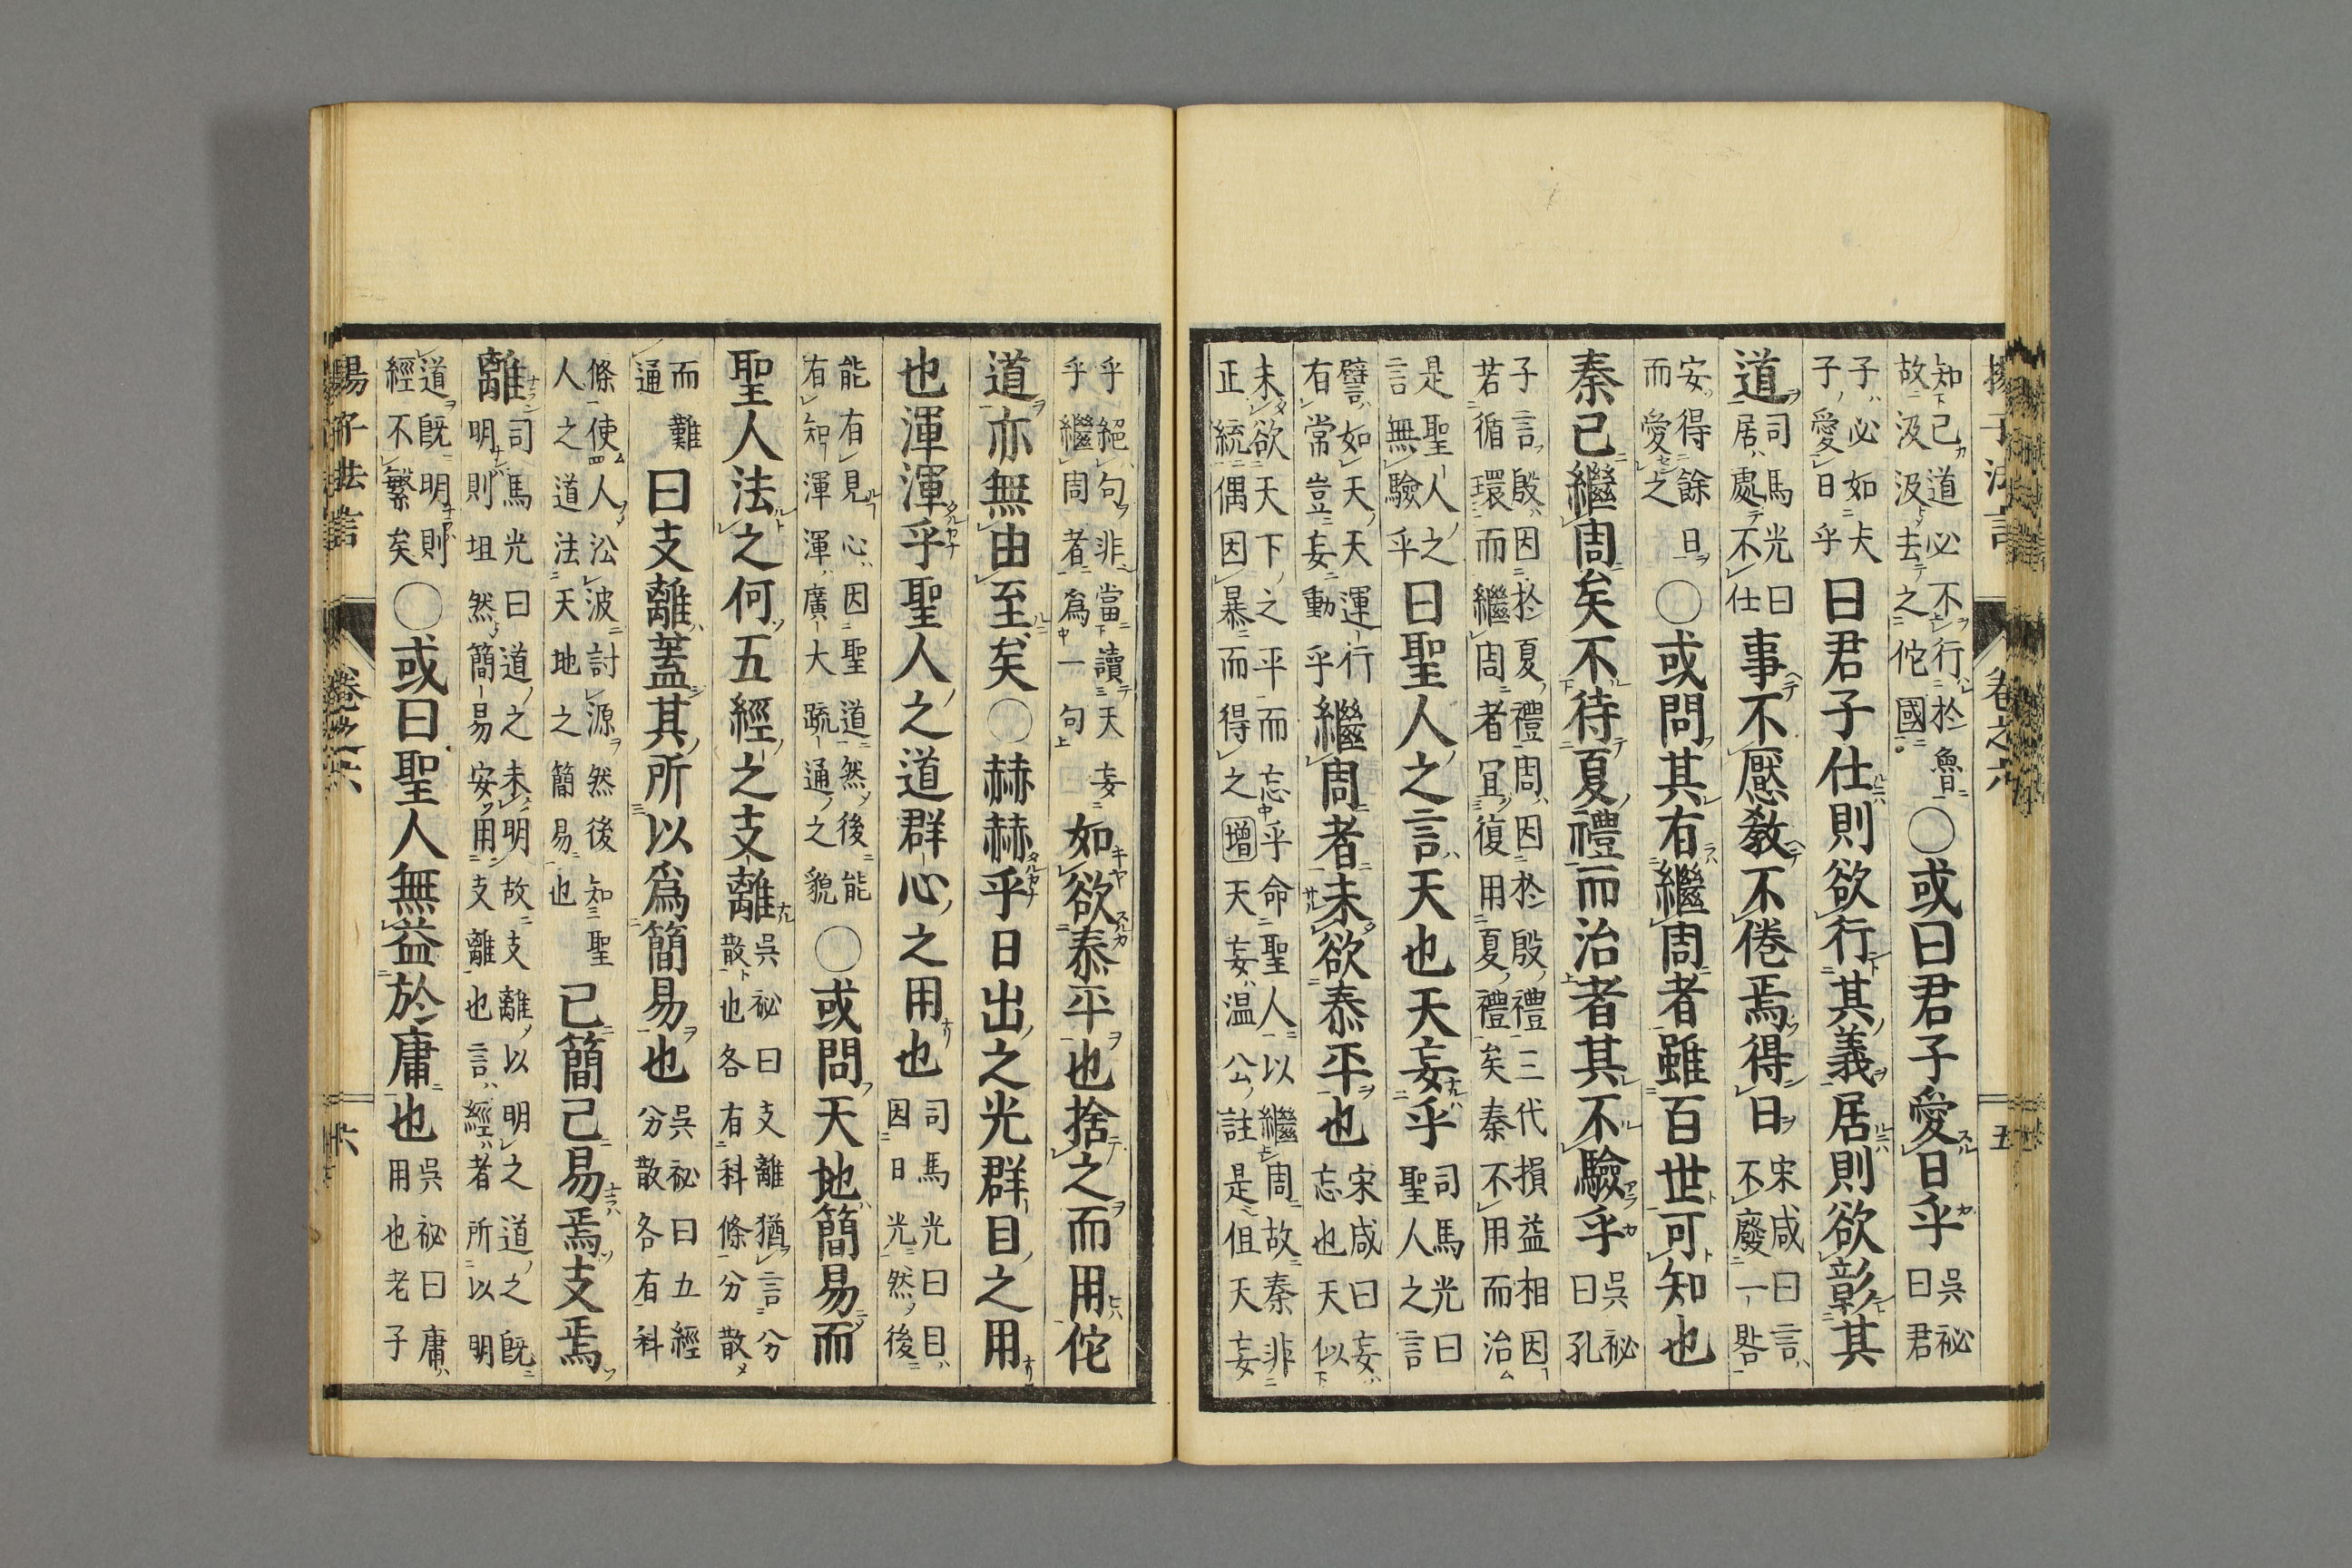 揚子法言 卷之六 五
知己道必不行於魯故汲汲去之佗國○或曰君子愛日乎吳祕曰君
子必如夫子愛日乎曰君子仕則欲行其義居則欲彰其
道司馬光曰居處不仕事不厭敎不倦焉得日宋咸曰言不廢一晷
安得餘日而愛之○或問其有繼周者雖百世可知也
秦已繼周矣不待夏禮而治者其不驗乎吳祕曰孔
子言殷因於夏禮周因於殷禮三代損益相因若循環而繼周者冝復用夏禮矣秦不用而治
是聖人之言無驗乎曰聖人之言天也天妄乎司馬光曰聖人之言
譬如天天運行有常豈妄動乎繼周者未欲泰平也宋咸曰妄忘也天似
未欲天下之平而忘乎命聖人以繼周故秦非正統偶因暴而得之增天妄温公註是但天妄
乎絕句非當讀天妄乎繼周者爲一句如欲泰平也捨之而用佗
道亦無由至矣○赫赫乎日出之光群目之用
也渾渾乎聖人之道群心之用也司馬光曰目因日光然後
能有見心因聖道然後能有知渾渾廣大疏通之貌○或問天地簡易而
聖人法之何五經之支離吳祕曰支離猶言分散也各有科條分散
而難通曰支離蓋其所以爲簡易也吳祕曰五經分散各有科
條使人沿波討源然後知聖人之道法天地之簡易也已簡已易焉支焉
離司馬光曰道之未明故支離以明之道之旣明則坦然簡易安用支離也言經者所以明
道旣明則經不繁矣○或曰聖人無益於庸也吳祕曰庸用也老子
揚子法言 卷之六 六